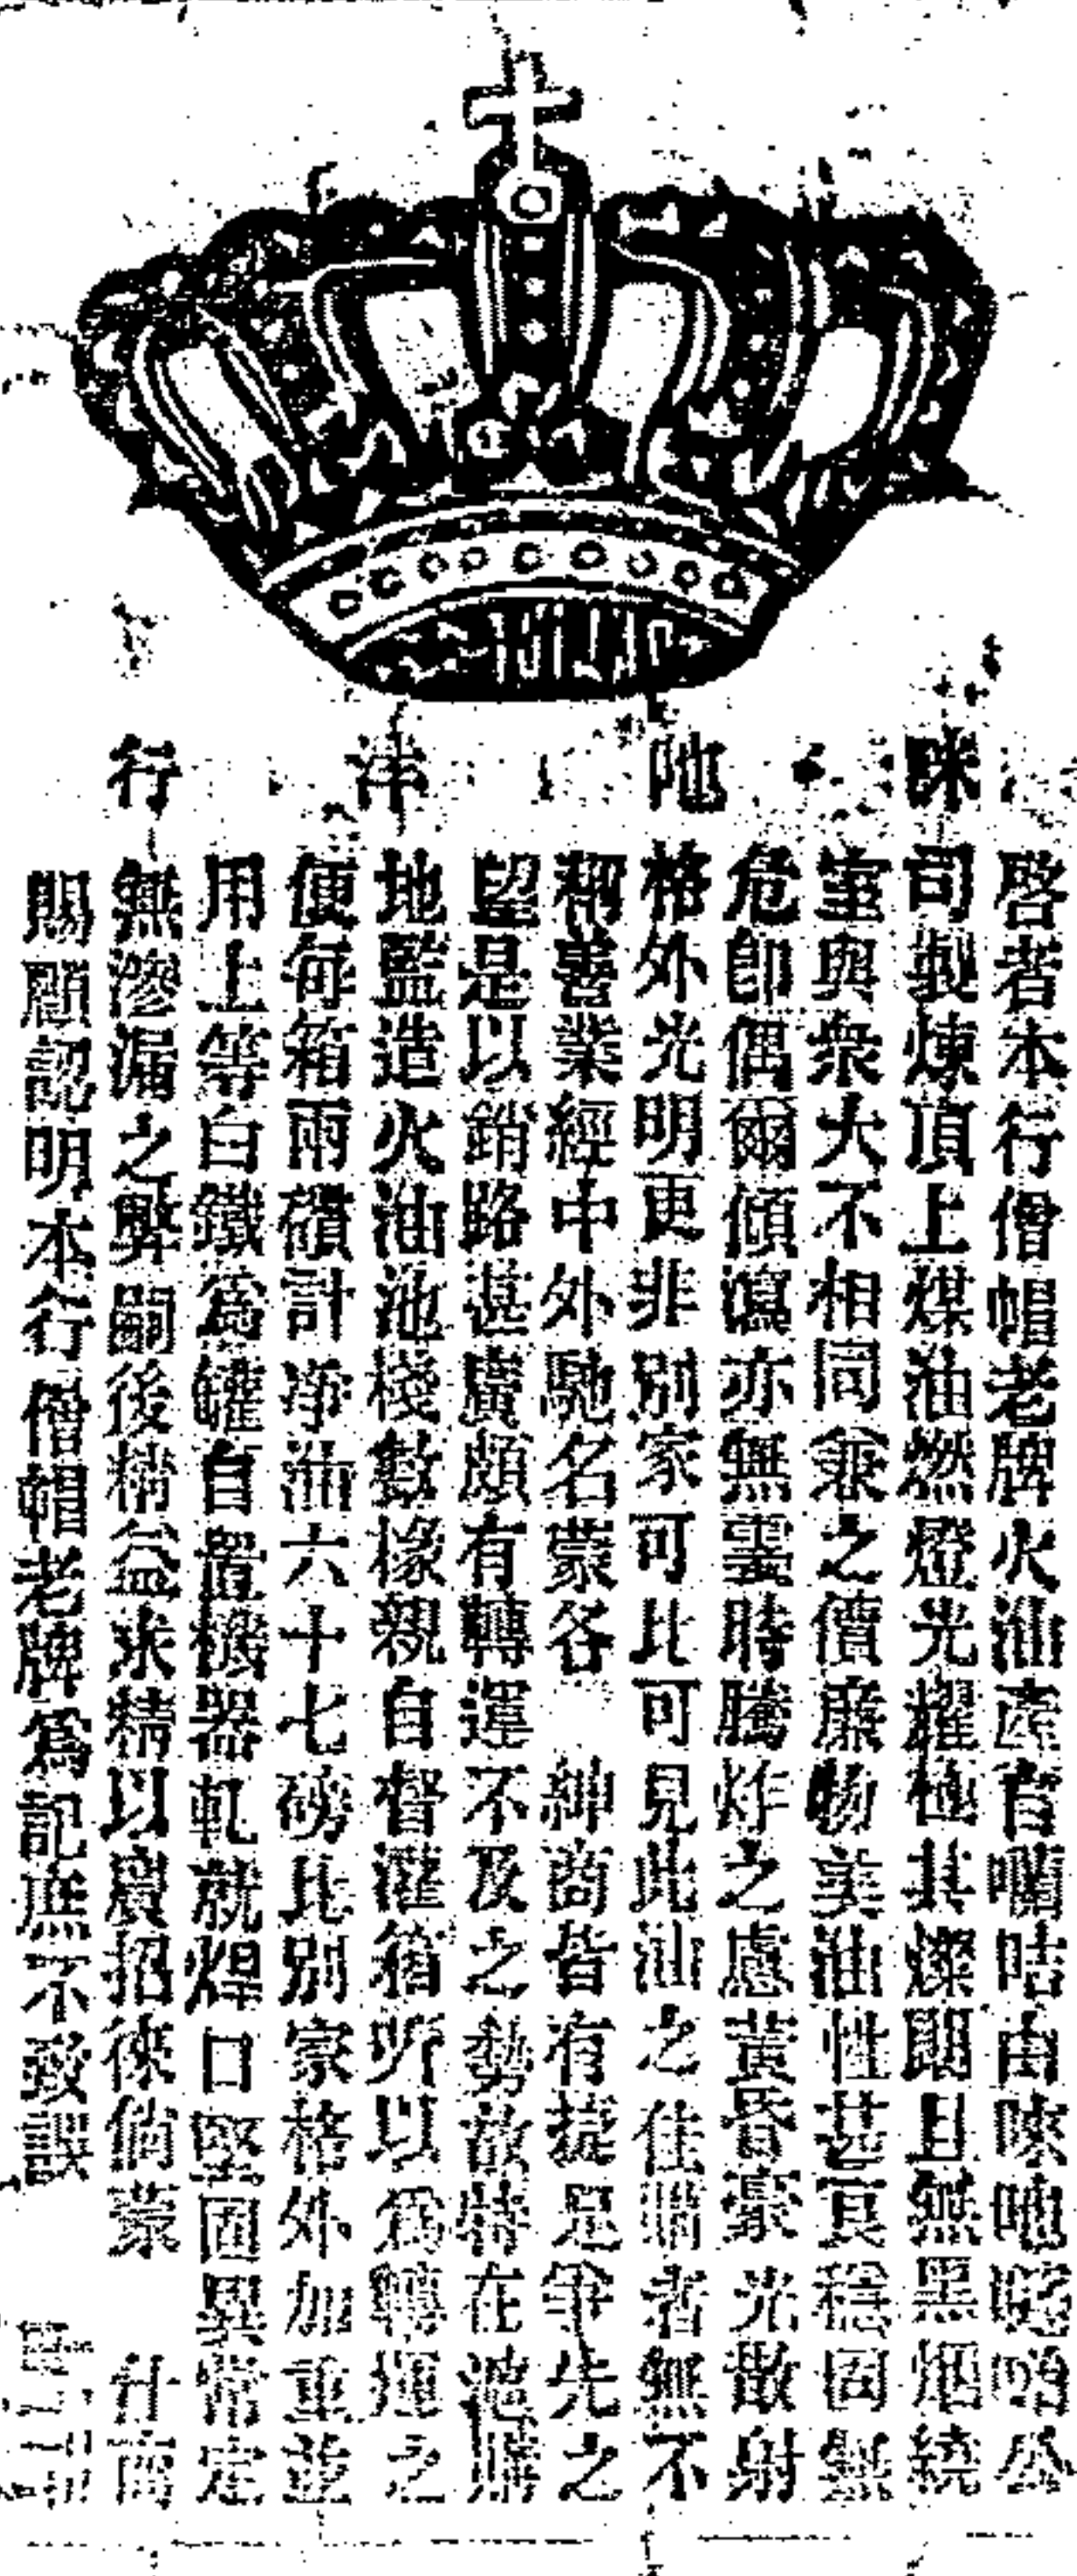 咪 地 洋 行
啓者本行僧帽老牌火油產自嚼咭由嘜哋公
司製煉頂上煤油燃燈光耀極其燦朗且無黑烟繞
室與衆大不相同兼之價廉物美油性甚眞穩固無
危卽偶爾傾瀉亦無霎時騰炸之慮黃昏豪光散射
格外光明更非別家可比可見此油之佳銷者無不
稱善業經中外馳名蒙各 紳商皆有捷足爭先之
望是以銷路甚廣頗有轉運不及之勢故特在滬購
地監造火油池棧數椽親自督灌箱听以爲轉運之
便每箱兩礶計淨油六十七磅比別家格外加重並
用上等白鐵爲罐自置機器軋就焊口堅固異常定
無滲漏之弊嗣後精益求精以廣招徠倘蒙 什商
賜顧認明本行僧帽老牌爲記庶不致誤